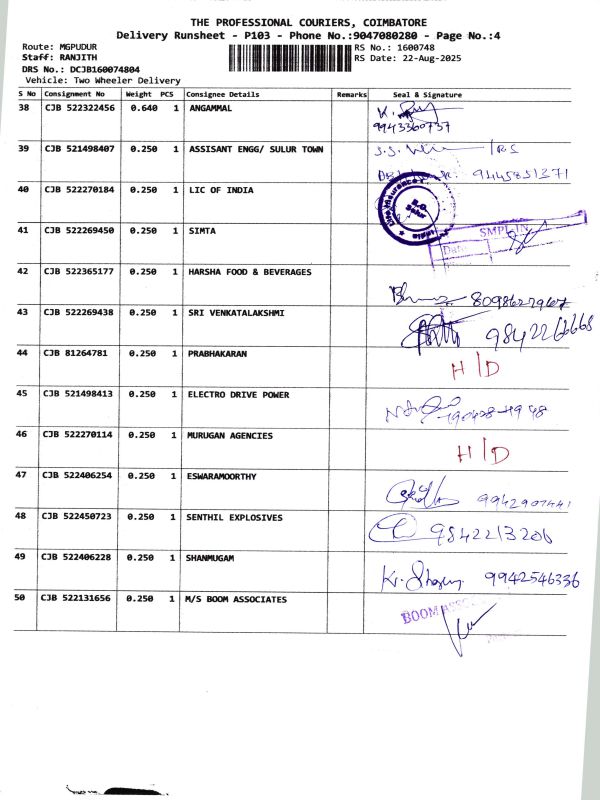 THE PROFESSIONAL COURIERS, COIMBATORE
Delivery Runsheet - P103 - Phone No.:9047080280 - Page No.:4
Route: MGPUDUR
RS No.: 1600748
Staff: RANJITH
RS Date: 22-Aug-2025
DRS No.: DCJB160074804
Vehicle: Two Wheeler Delivery
S No Consignment No Weight PCS Consignee Details Remarks Seal & Signature
38 CJB 522322456 0.640 1 ANGAMMAL K.
9943360737
39 CJB 521498407 0.250 1 ASSISANT ENGG/ SULUR TOWN S.S.
9445851371
40 CJB 522270184 0.250 1 LIC OF INDIA
41 CJB 522269450 0.250 1 SIMTA SMPL-IN
Date
42 CJB 522365177 0.250 1 HARSHA FOOD & BEVERAGES
8098627967
43 CJB 522269438 0.250 1 SRI VENKATALAKSHMI
9842266668
44 CJB 81264781 0.250 1 PRABHAKARAN H/D
45 CJB 521498413 0.250 1 ELECTRO DRIVE POWER
46 CJB 522270114 0.250 1 MURUGAN AGENCIES H/D
47 CJB 522406254 0.250 1 ESWARAMOORTHY
9942907441
48 CJB 522450723 0.250 1 SENTHIL EXPLOSIVES 9842213206
49 CJB 522406228 0.250 1 SHANMUGAM
9942546336
50 CJB 522131656 0.250 1 M/S BOOM ASSOCIATES BOOM